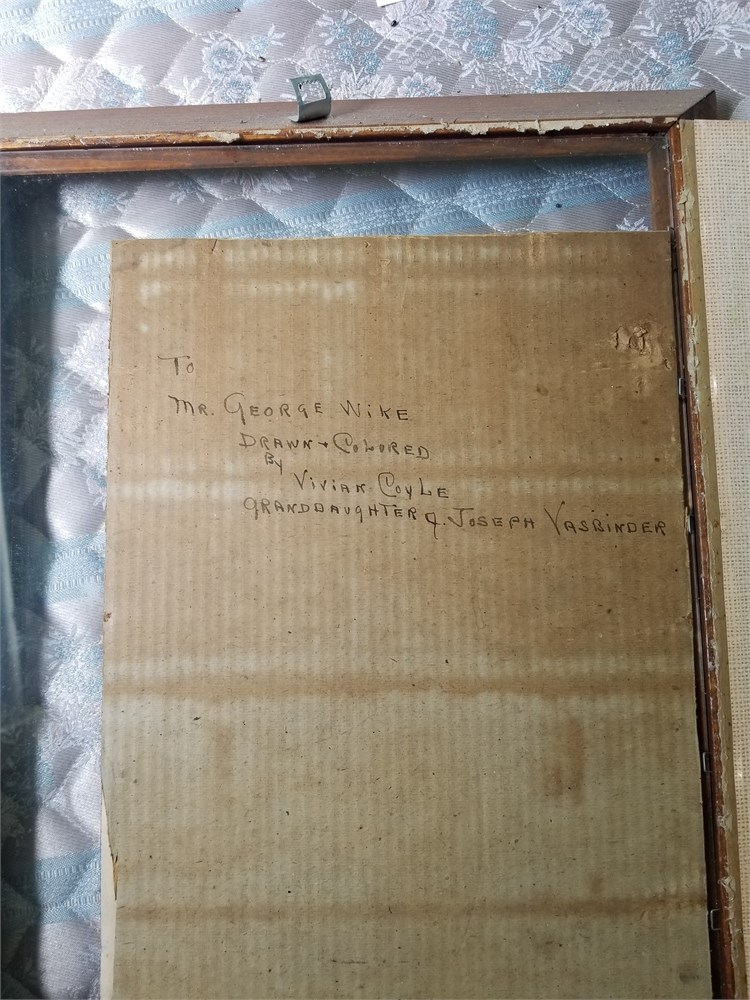 To
MR. GEORGE WIKE
DRAWN + COLORED
By
VIVIAN COYLE
GRANDDAUGHTER of JOSEPH VASBINDER